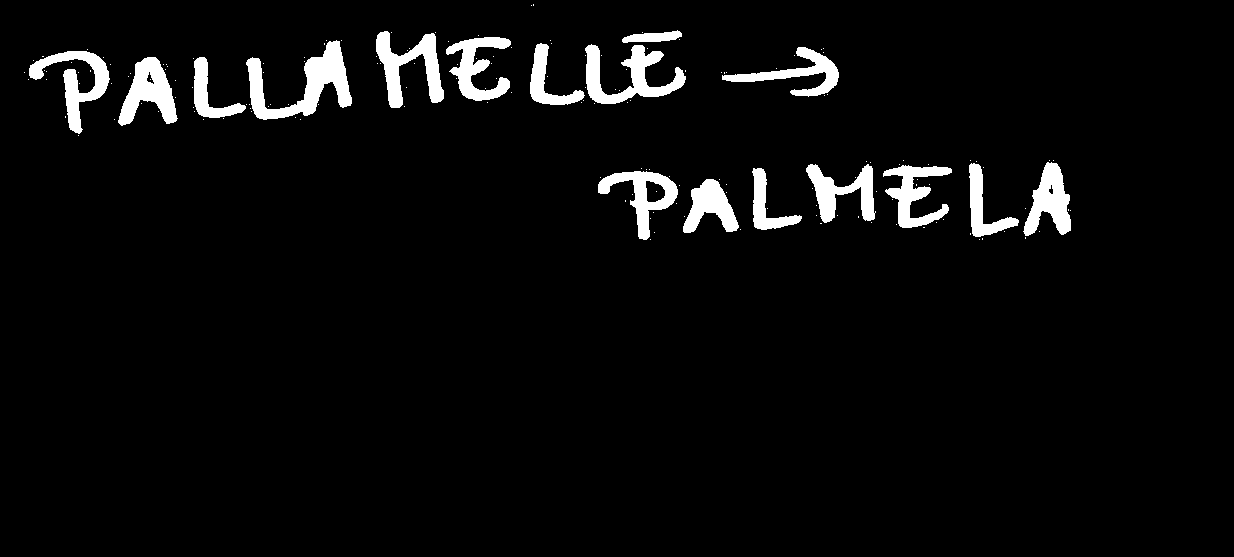 PALLAMELLE →
PALMELA